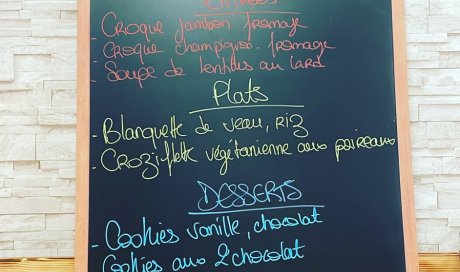 Croque jambon fromage
- Croque champignon. fromage
- Soupe de lentilles au lard
Plats
- Blanquette de veau, Riz
- Croziflette végétarienne aux poireaux
DESSERTS
- Cookies vanille, chocolat
Cookies aux 2 chocolat